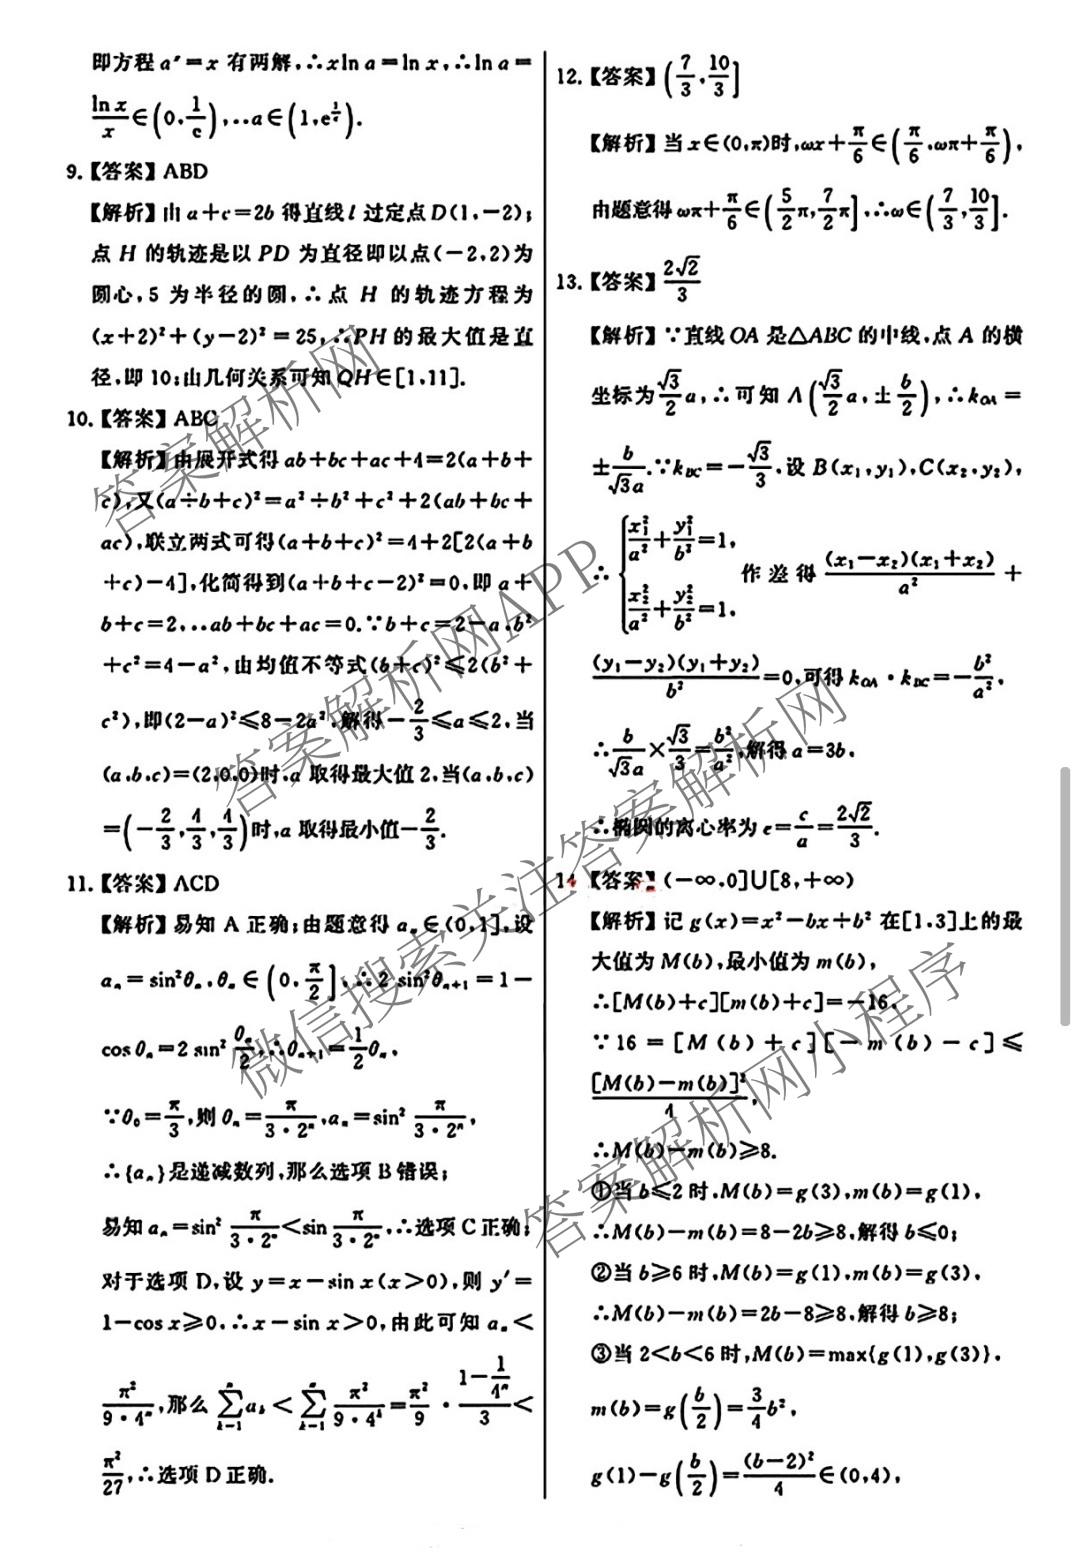 即方程 aˣ=x 有两解,∴xln a=ln x,∴ln a=
ln x/x∈(0,1/e),∴a∈(1,e^{1/e}).
9.【答案】ABD
【解析】由 a+c=2b 得直线 l 过定点 D(1,-2);
点 H 的轨迹是以 PD 为直径即以点(-2,2)为
圆心,5 为半径的圆,∴点 H 的轨迹方程为
(x+2)²+(y-2)²=25,∴PH的最大值是直
径,即 10;由几何关系可知QH∈[1,11].
10.【答案】ABC
【解析】由展开式得 ab+bc+ac+4=2(a+b+
c),又(a+b+c)²=a²+b²+c²+2(ab+bc+
ac),联立两式可得(a+b+c)²=4+2[2(a+b
+c)-4],化简得到(a+b+c-2)²=0,即 a+
b+c=2,∴ab+bc+ac=0.∵b+c=2-a,b²
+c²=4-a²,由均值不等式(b+c)²≤2(b²+
c²),即(2-a)²≤8-2a²,解得-2/3≤a≤2,当
(a,b,c)=(2,0,0)时,a 取得最大值 2,当(a,b,c)
=(-2/3,4/3,4/3)时,a 取得最小值-2/3.
11.【答案】ACD
【解析】易知 A 正确;由题意得 aₙ∈(0,1],设
aₙ=sin²θₙ,θₙ∈(0,π/2],∴2 sin²θₙ₊₁=1-
cos θₙ=2 sin² θₙ/2,∴θₙ₊₁=1/2θₙ,
∵θ₀=π/3,则 θₙ=π/(3·2ⁿ),aₙ=sin² π/(3·2ⁿ),
∴{aₙ}是递减数列,那么选项 B 错误;
易知 aₙ=sin² π/(3·2ⁿ)<sin π/(3·2ⁿ),∴选项 C 正确;
对于选项 D,设 y=x-sin x(x>0),则 y′=
1-cos x≥0,∴x-sin x>0,由此可知 aₙ<
π²/(9·4ⁿ),那么 ∑_{k=1}^{n} aₖ<∑_{k=1}^{n} π²/(9·4ᵏ)=π²/9·(1-1/4ⁿ)/3<
π²/27,∴选项 D 正确.
12.【答案】(7/3,10/3]
【解析】当 x∈(0,π)时,ωx+π/6∈(π/6,ωπ+π/6),
由题意得 ωπ+π/6∈(5/2π,7/2π],∴ω∈(7/3,10/3].
13.【答案】2√2/3
【解析】∵直线 OA 是△ABC 的中线,点 A 的横
坐标为√3/2 a,∴可知 A(√3/2 a,±b/2),∴k_OA=
±b/(√3a).∵k_BC=-√3/3,设 B(x₁,y₁),C(x₂,y₂),
∴{x₁²/a²+y₁²/b²=1, x₂²/a²+y₂²/b²=1, 作差得 (x₁-x₂)(x₁+x₂)/a² +
(y₁-y₂)(y₁+y₂)/b²=0,可得 k_OA·k_BC=-b²/a²,
∴b/(√3a)×√3/3=b²/a²,解得 a=3b,
∴椭圆的离心率为 e=c/a=2√2/3.
14.【答案】(-∞,0]∪[8,+∞)
【解析】记 g(x)=x²-bx+b² 在[1,3]上的最
大值为 M(b),最小值为 m(b),
∴[M(b)+c][m(b)+c]=-16,
∵16=[M(b)+c][-m(b)-c]≤
[M(b)-m(b)]²/4,
∴M(b)-m(b)≥8.
①当 b≤2 时,M(b)=g(3),m(b)=g(1),
∴M(b)-m(b)=8-2b≥8,解得 b≤0;
②当 b≥6 时,M(b)=g(1),m(b)=g(3),
∴M(b)-m(b)=2b-8≥8,解得 b≥8;
③当 2<b<6 时,M(b)=max{g(1),g(3)},
m(b)=g(b/2)=3/4b²,
g(1)-g(b/2)=(b-2)²/4∈(0,4),
答案解析网
答案解析网APP
微信搜索关注答案解析网
答案解析网小程序